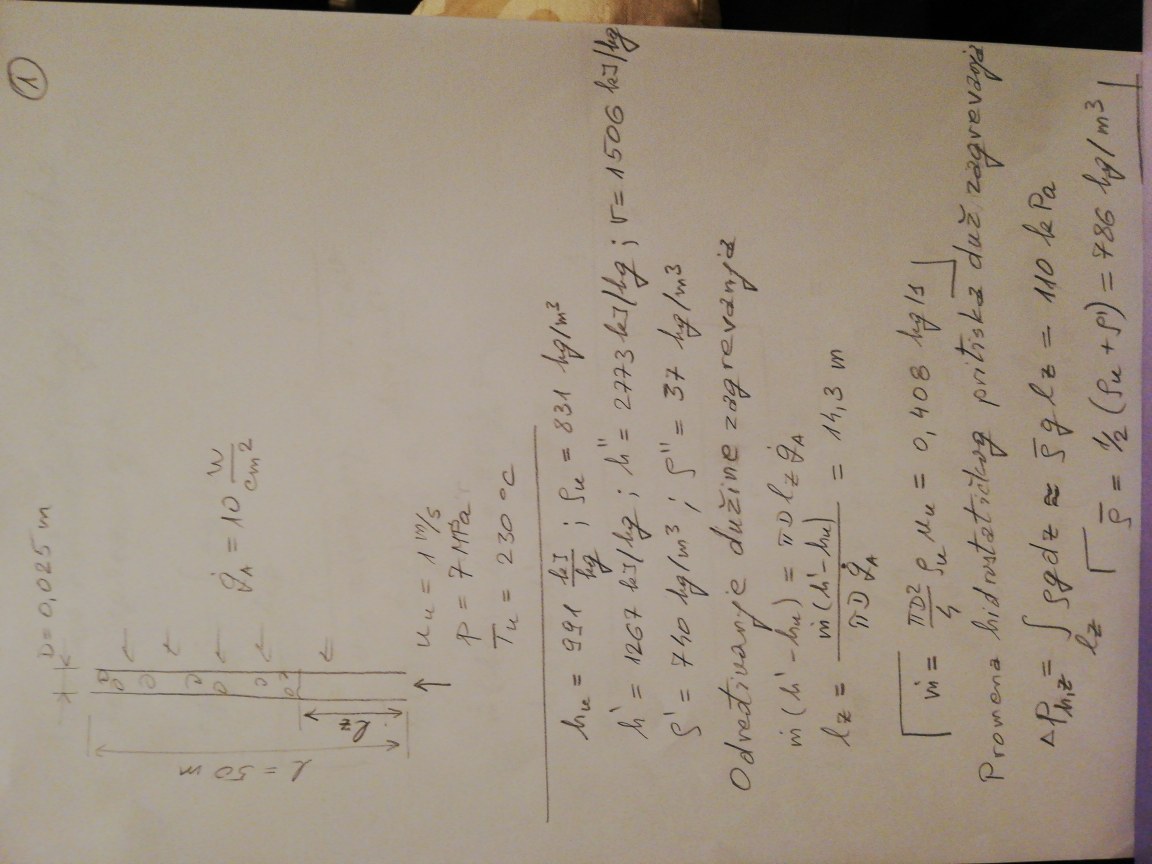 ①
D = 0,025 m
l = 50 m
l_z
q̇_A = 10 W/cm²
u_u = 1 m/s
P = 7 MPa
T_u = 230 °C
h_u = 991 kJ/kg ; ρ_u = 831 kg/m³
h' = 1267 kJ/kg ; h'' = 2773 kJ/kg ; r = 1506 kJ/kg
ρ' = 740 kg/m³ ; ρ'' = 37 kg/m³
Određivanje dužine zagrevanja
ṁ (h' - h_u) = π D l_z q̇_A
l_z = ṁ (h' - h_u) / π D q̇_A = 14,3 m
ṁ = πD²/4 ρ_u u_u = 0,408 kg/s
Promena hidrostatičkog pritiska duž zagrevanja
ΔP_h,z = ∫_l_z ρgdz ≈ ρ̄ g l_z = 110 kPa
ρ̄ = 1/2 (ρ_u + ρ') = 786 kg/m³